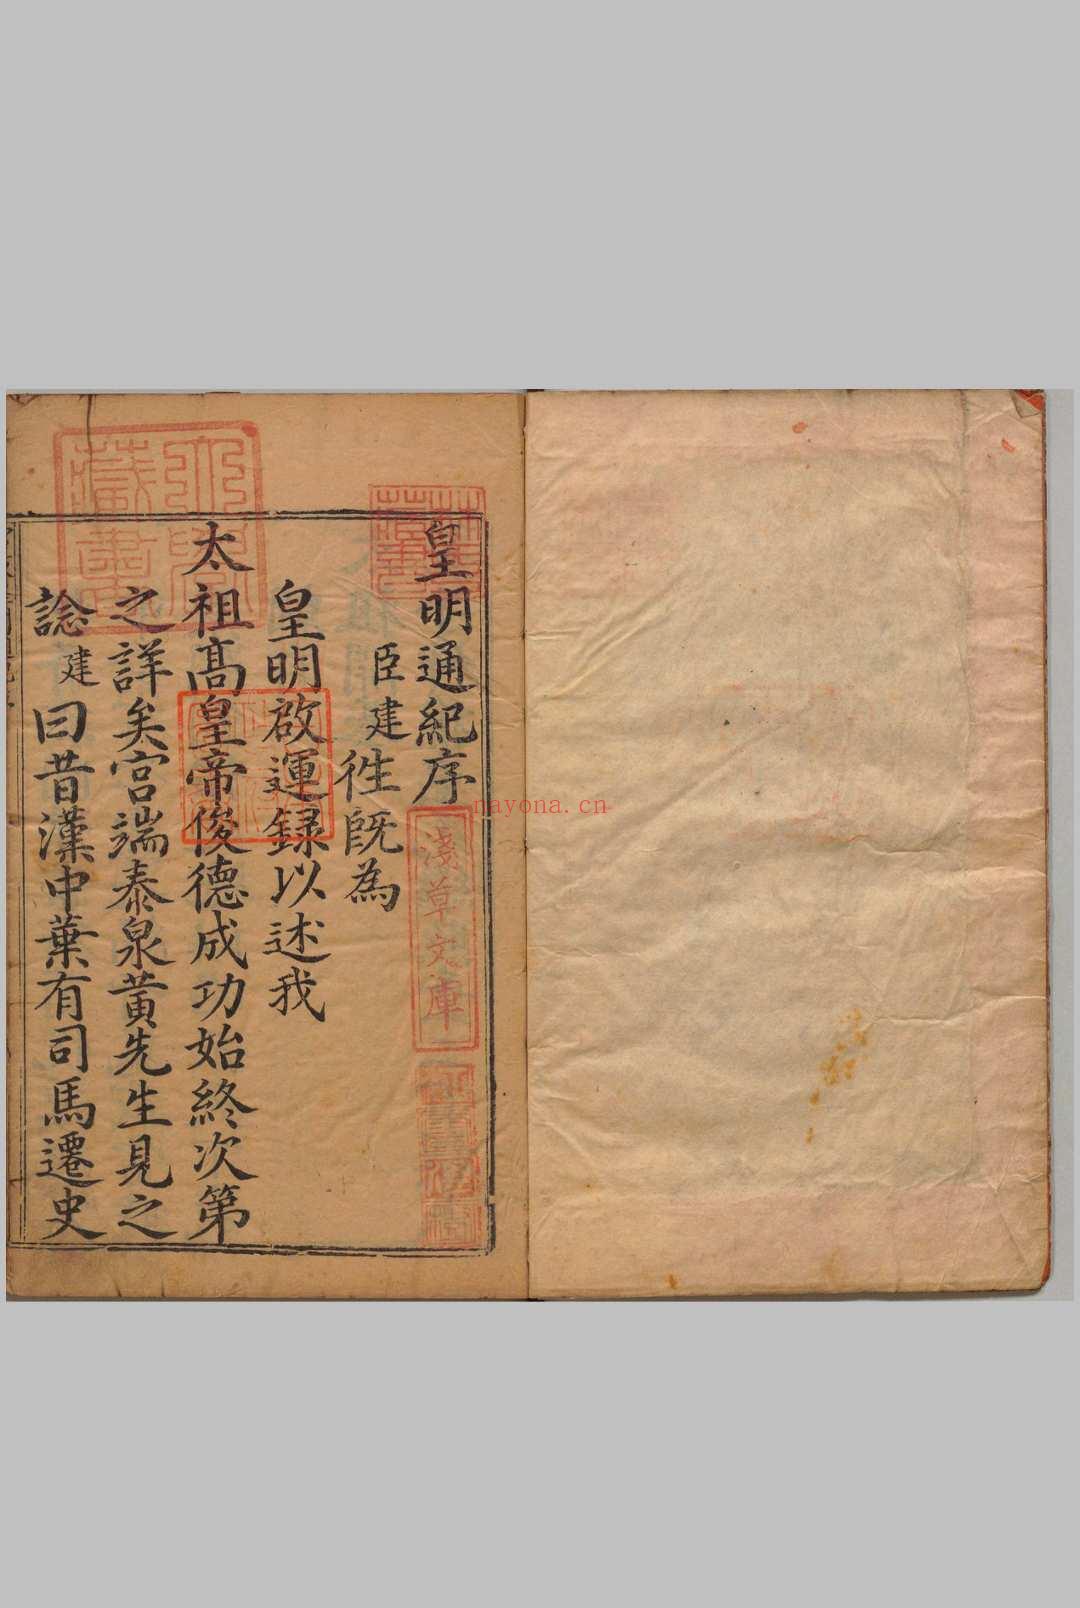 皇明通紀序
臣建徃既為
皇明啟運録以述我
太祖高皇帝俊德成功始終次第
之詳矣宫端泰泉黄先生見之
諗建曰昔漢中葉有司馬遷史
淺草文庫
藏書
nayona.cn